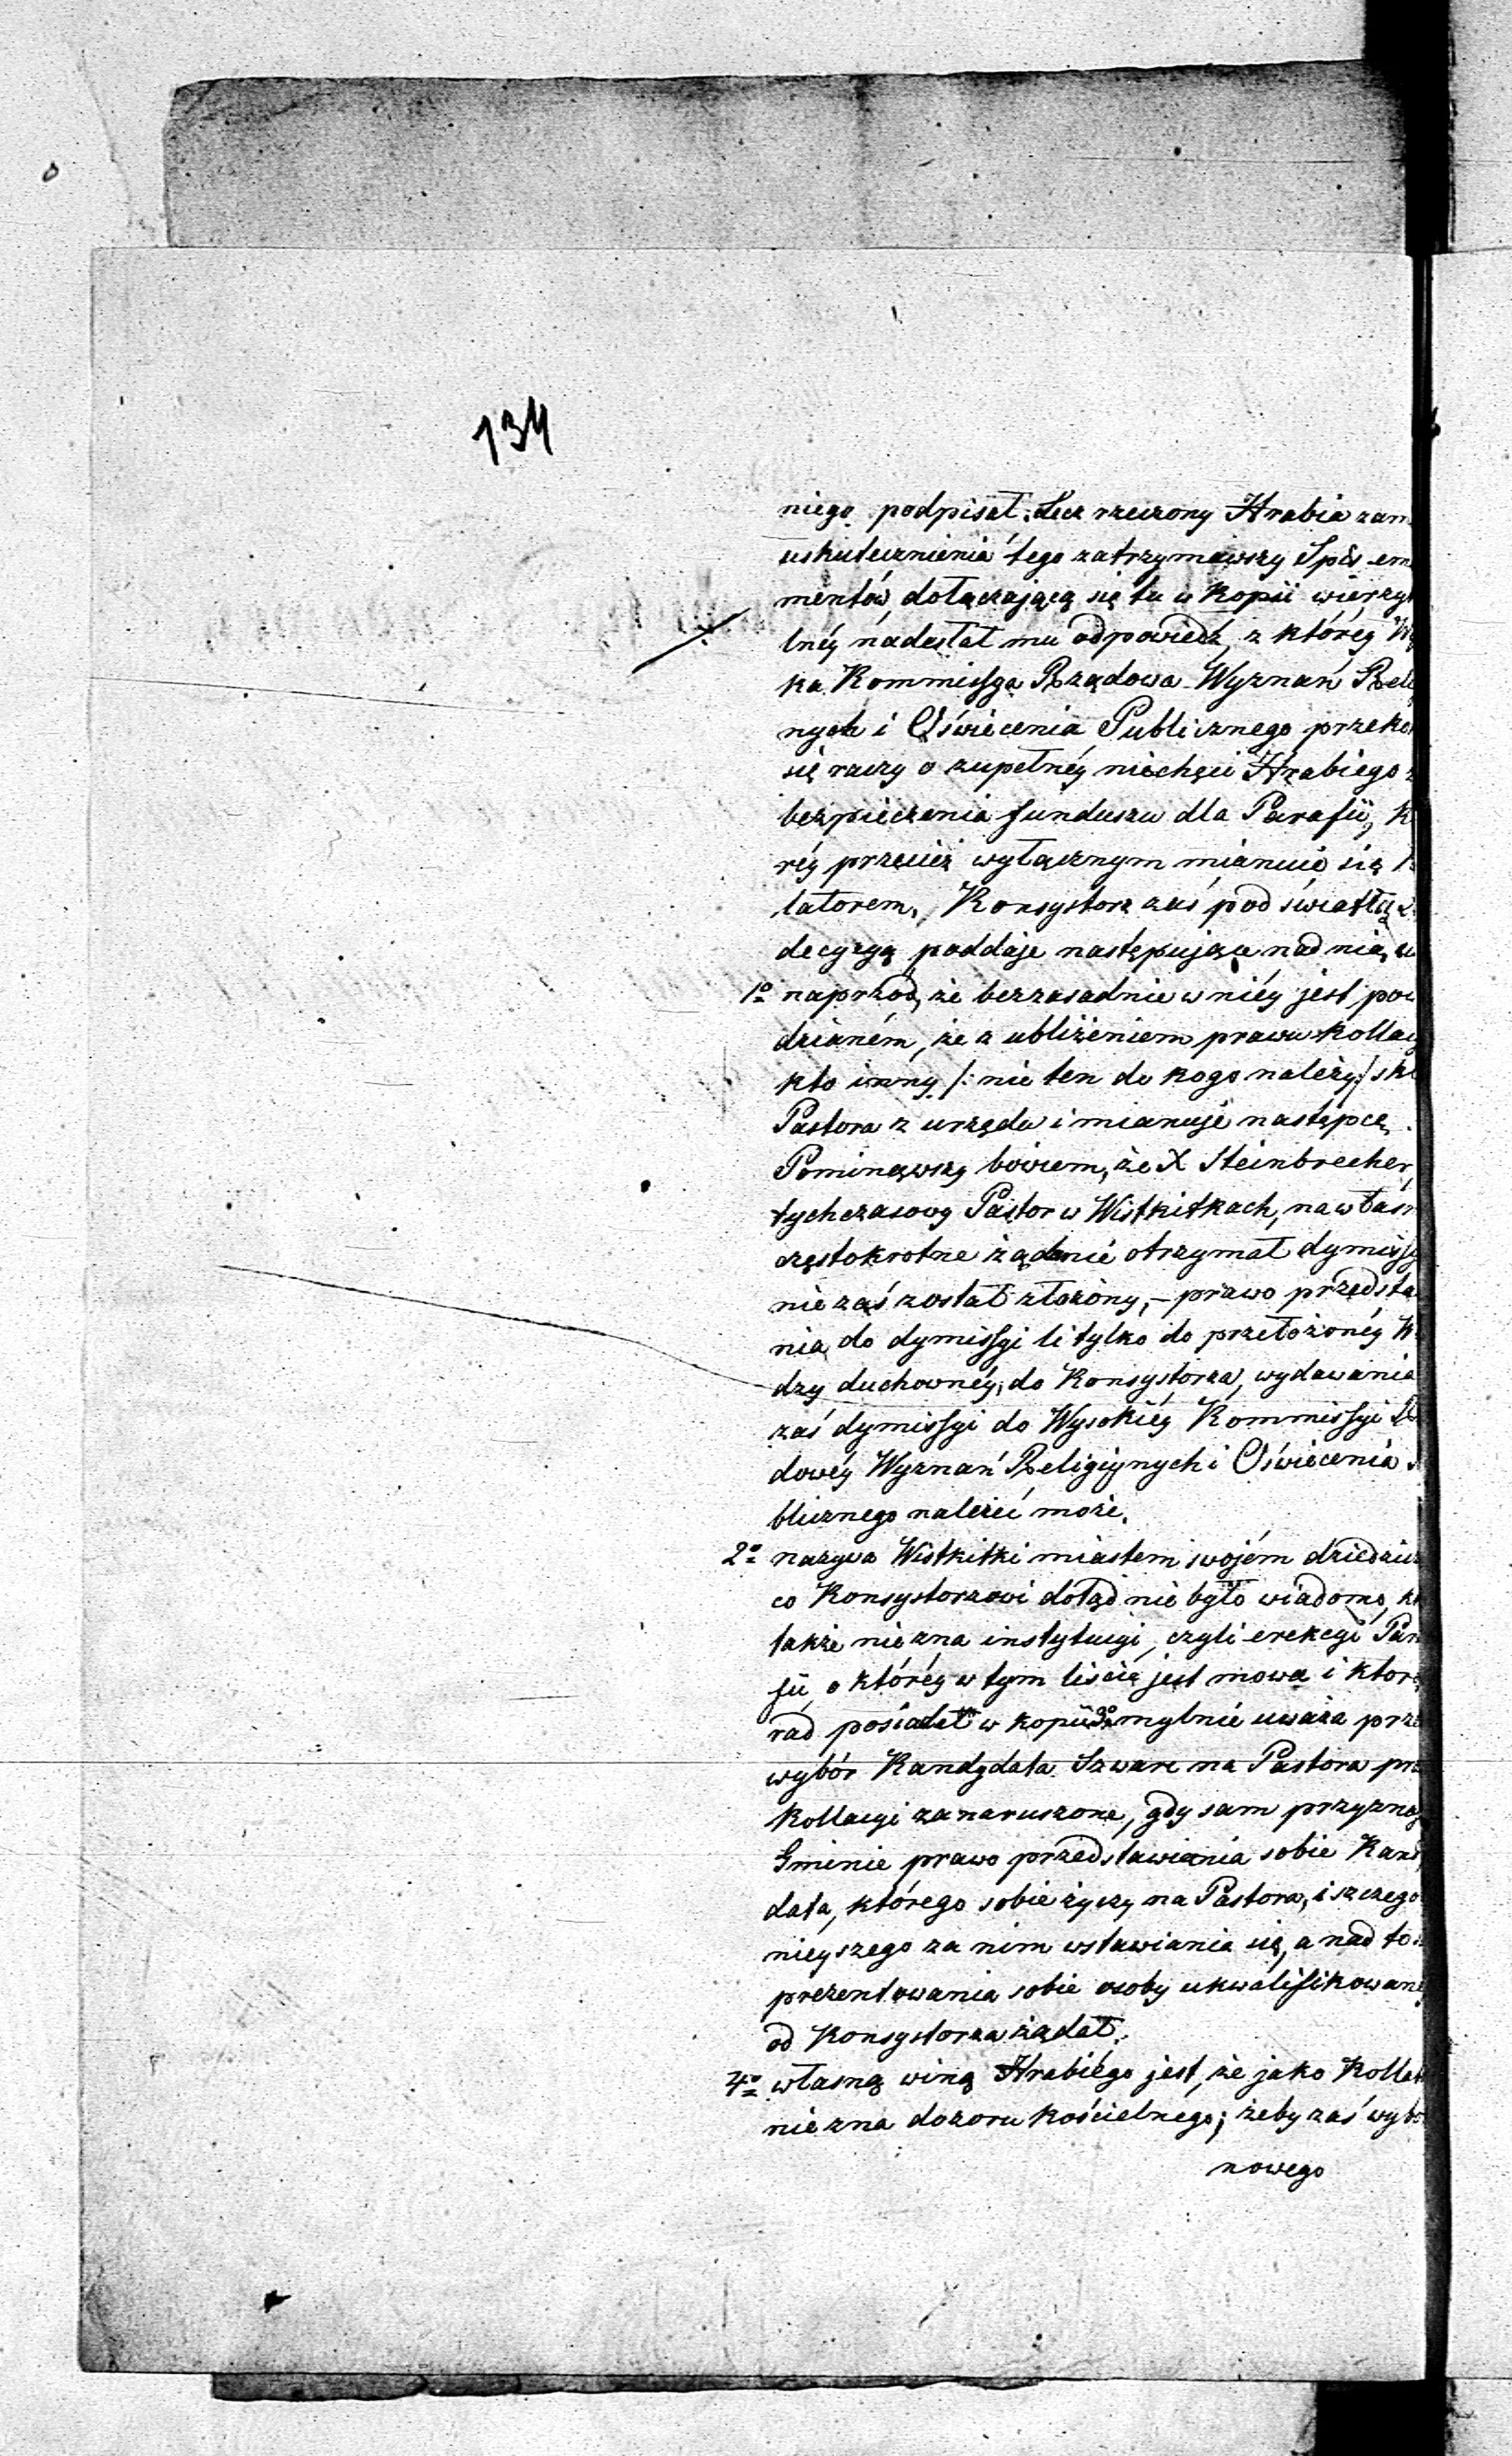 134
niego podpisał. Lecz rzeczony Hrabia zam
uskutecznienia tego zatrzymawszy Spis em
mentów, dołączającą się tu w kopii wierzyt
lnéy nadesłał mu odpowiedź, z któréy Wy
ka Kommissya Rządowa Wyznań Reli
nych i Oświecenia Publicznego przeko
się raczy o zupełnéy niechęci Hrabiego z
bezpieczenia funduszu dla Parafii, k
réy przecież wyłącznym mianuie się
latorem. Konsystorz zaś pod światłą
decyzyą poddaje następujące nad nią u
1o naprzod, że bezzasadnie w niéy jest pow
dzianém, że z ubliżeniem prawu kollacy
kto inny /: nie ten do kogo należy:/ skł
Pastora z urzędu i mianuje następcę.
Pominąwszy bowiem, że X Steinbrecher,
tychczasowy Pastor w Wiskitkach, na własn
częstokrotne żądanie otrzymał dymissy
nie zaś został złożony, – prawo przedsta
nia do dymissyi li tylko do przełożonéy Wł
dzy duchownéy, do Konsystorza, wydawania
zaś dymissyi do Wysokiéy Kommissyi Rz
dowéy Wyznań Religiynych i Oświecenia
blicznego należeć może.
2o nazywa Wistkitki miastem swojém dziedzicz
co Konsystorzowi dotąd nie było wiadomo, kt
także nie zna instytucyi, czyli erekcyi Para
fii, o któréy w tym liście jest mowa i którą
rad posiadał w kopii 3o mylnie uważa prze
wybór Kandydata Szwarc na Pastora pra
kollacyi za naruszone, gdy sam przyzna
Gminie prawo przedstawiania sobie Kandy
data, którego sobie życzy na Pastora, i szczegó
nieyszego za nim wstawiania się, a nad to
prezentowania sobie osoby ukwalifikowané
od Konsystorza żądał.
4o własną winą Hrabiégo jest, że jako Kollat
nie zna dozoru kościelnego; żeby zaś wybo
nowego